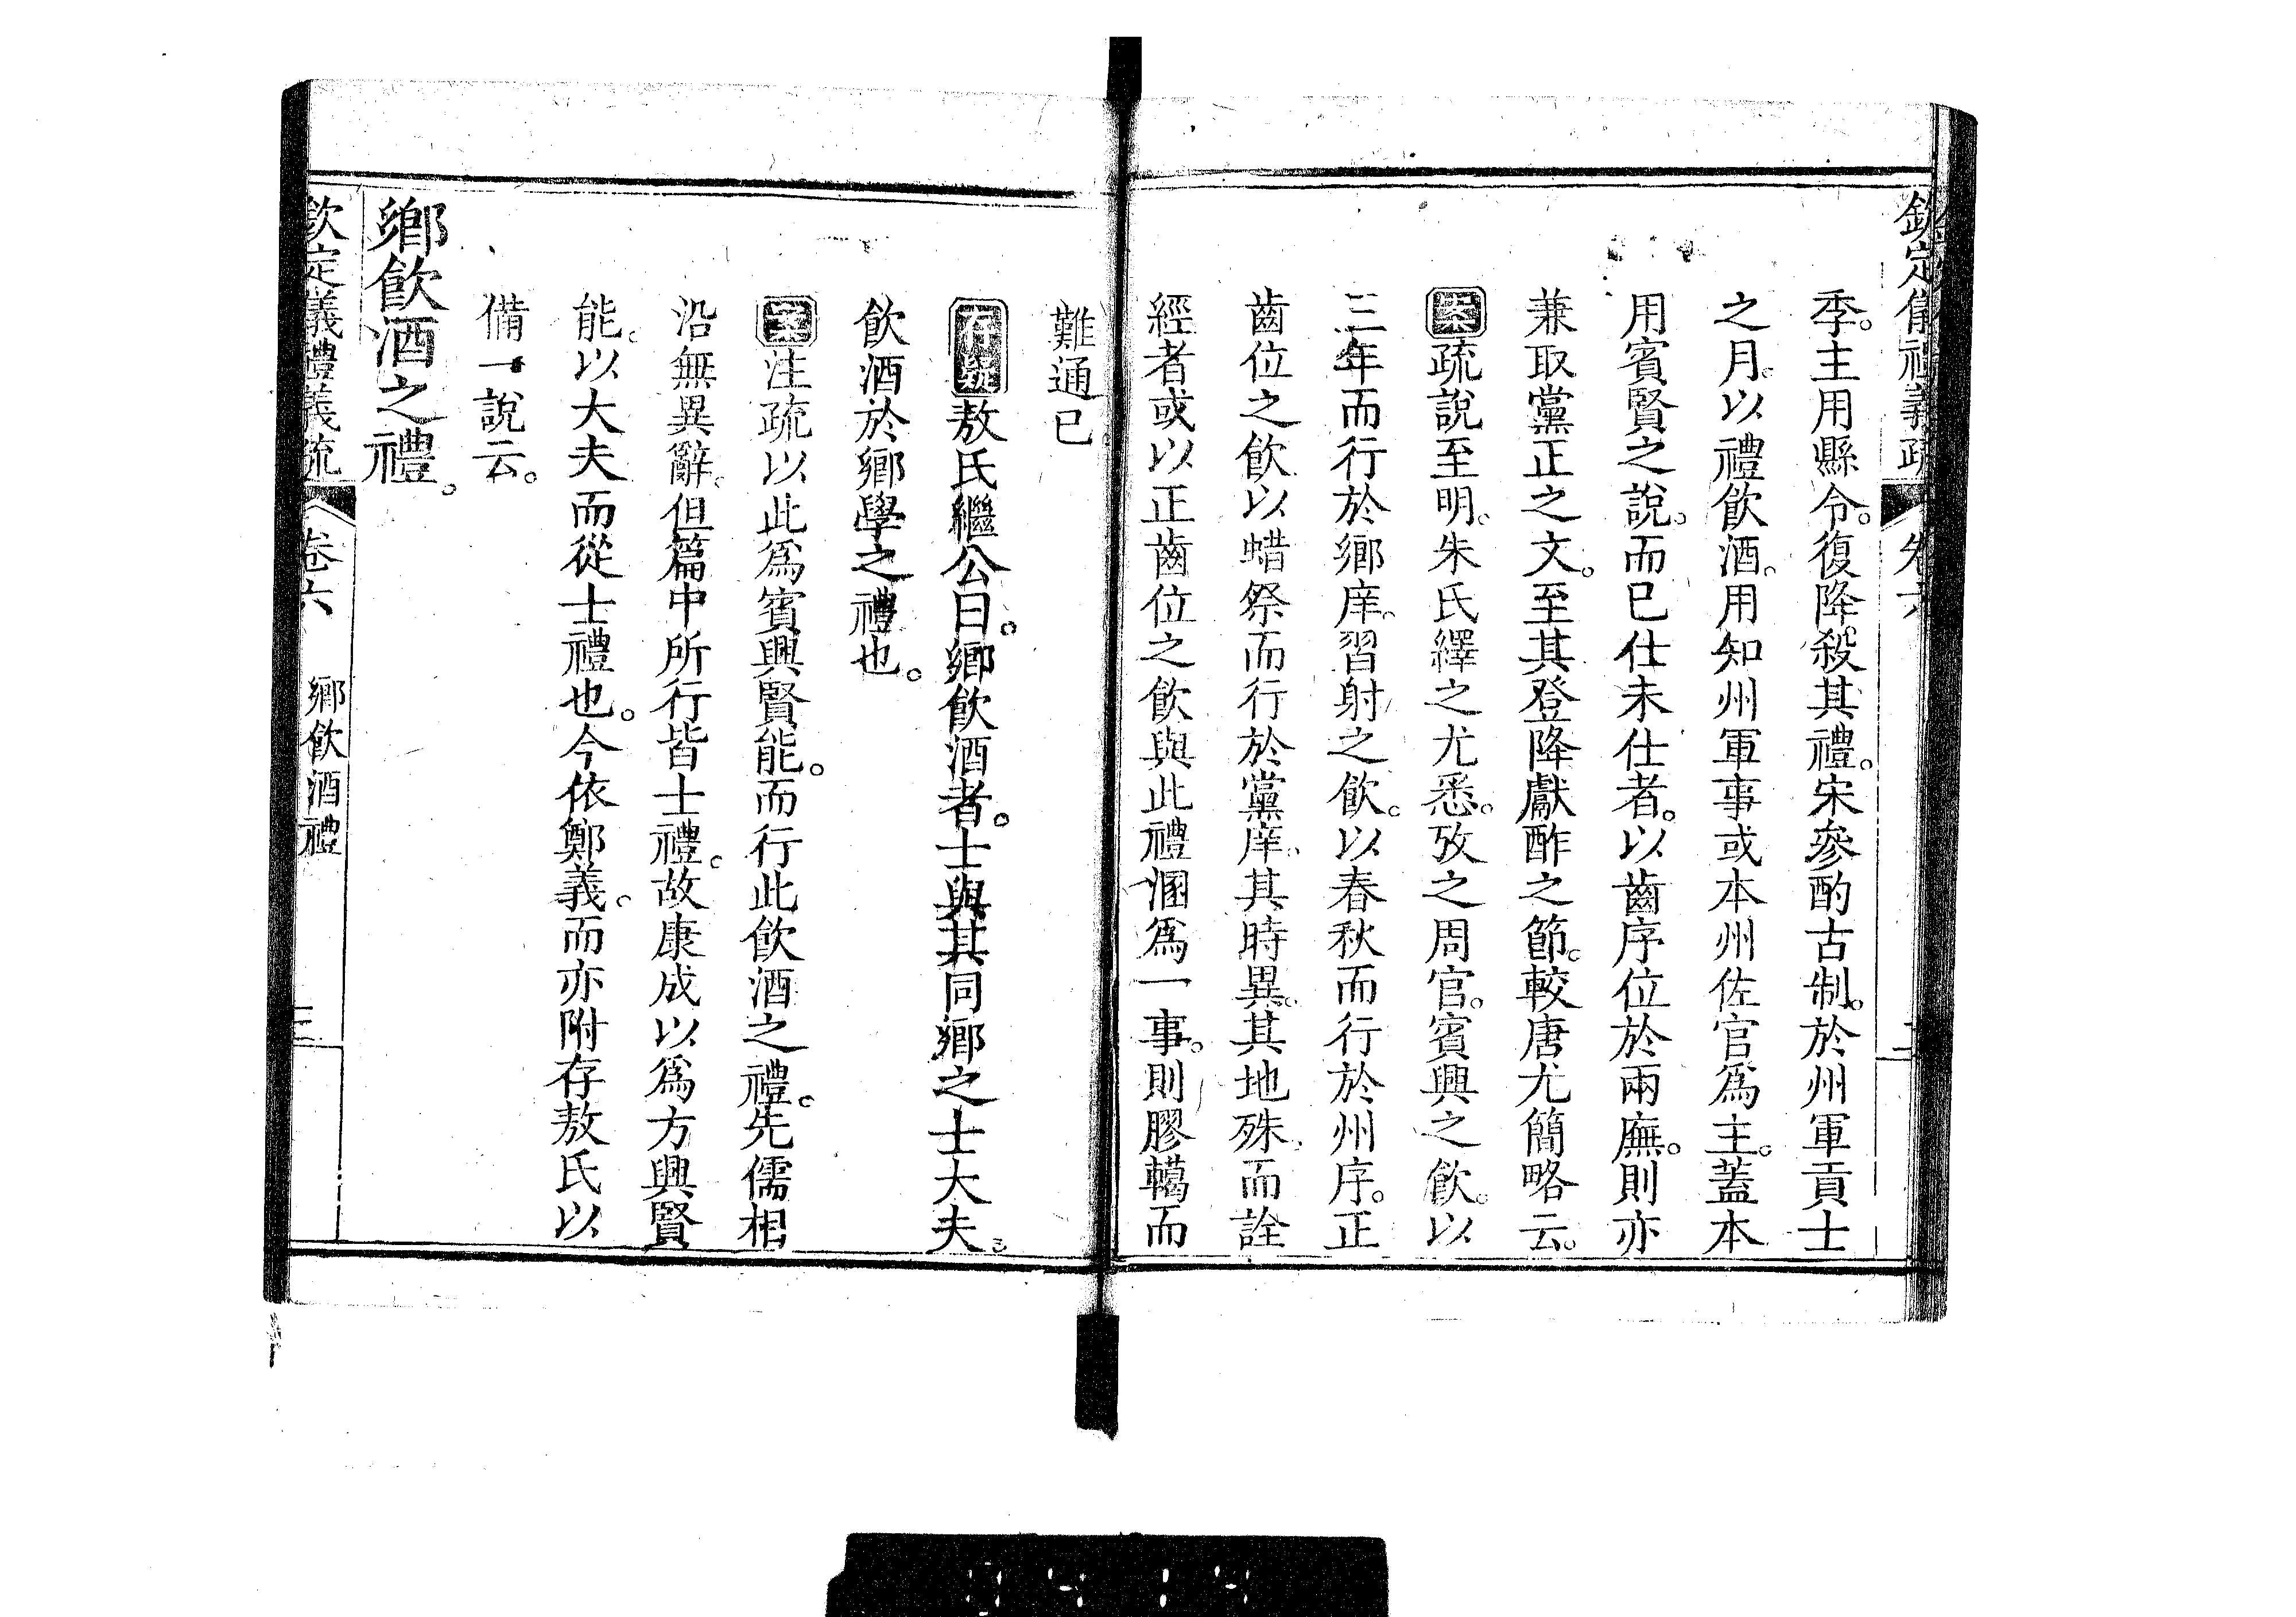 欽定儀禮義疏 卷六 二
季。主用縣令。復降殺其禮。宋參酌古制。於州軍貢士
之月。以禮飲酒。用知州軍事或本州佐官爲主。蓋本
用賓賢之說。而已仕未仕者。以齒序位於兩廡。則亦
兼取黨正之文。至其登降獻酢之節。較唐尤簡略云。
案疏說至明。朱氏繹之尤悉。攷之周官。賓興之飲。以
三年而行於鄉庠。習射之飲。以春秋而行於州序。正
齒位之飲以蜡祭而行於黨庠。其時異。其地殊。而詮
經者或以正齒位之飲與此禮溷爲一事。則膠轕而
難通已。
存疑敖氏繼公曰。鄉飲酒者。士與其同鄉之士大夫。
飲酒於鄉學之禮也。
案注疏以此爲賓興賢能。而行此飲酒之禮。先儒相
沿無異辭。但篇中所行皆士禮。故康成以爲方興賢
能。以大夫而從士禮也。今依鄭義。而亦附存敖氏以
備一說云。
鄉飲酒之禮。
欽定儀禮義疏 卷六 鄉飲酒禮 三